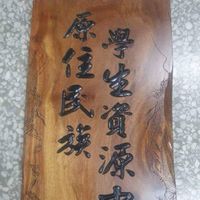 原住民族
學生資源